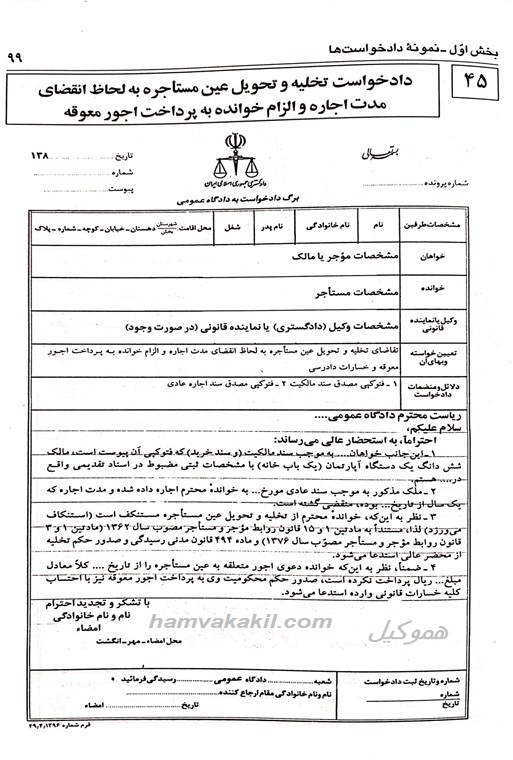 بخش اوّل - نمونۀ دادخواست‌ها
۹۹
۴۵
دادخواست تخلیه و تحویل عین مستأجره به لحاظ انقضای
مدت اجاره و الزام خوانده به پرداخت اجور معوقه
بسمه تعالی
دادگستری جمهوری اسلامی ایران
تاریخ .................... ۱۳۸
شماره ....................
پیوست ....................
شماره پرونده ....................
برگ دادخواست به دادگاه عمومی
مشخصات طرفین
نام
نام خانوادگی
نام پدر
شغل
محل اقامت: شهرستان بخش دهستان - خیابان - کوچه - شماره - پلاک
خواهان
مشخصات مؤجر یا مالک
خوانده
مشخصات مستأجر
وکیل یا نماینده قانونی
مشخصات وکیل (دادگستری) یا نماینده قانونی (در صورت وجود)
تعیین خواسته وبهای آن
تقاضای تخلیه و تحویل عین مستأجره به لحاظ انقضای مدت اجاره و الزام خوانده به پرداخت اجور
معوقه و خسارات دادرسی
دلائل و منضمات دادخواست
۱ - فتوکپی مصدق سند مالکیت ۲ - فتوکپی مصدق سند اجاره عادی
ریاست محترم دادگاه عمومی....
سلام علیکم،
احتراماً، به استحضار عالی می‌رساند:
۱ - این جانب خواهان.... به موجب سند مالکیت (و سند خرید) که فتوکپی آن پیوست است، مالک
شش دانگ یک دستگاه آپارتمان (یک باب خانه) با مشخصات ثبتی مضبوط در اسناد تقدیمی واقع
در.... هستم.
۲ - ملک مذکور به موجب سند عادی مورخ... به خوانده محترم اجاره داده شده و مدت اجاره که
یک سال از تاریخ... بوده، منقضی گشته است.
۳ - نظر به این‌که، خواندۀ محترم از تخلیه و تحویل عین مستأجره مستنکف است (استنکاف
می‌ورزد) لذا، مستنداً به مادتین ۱ و ۱۵ قانون روابط مؤجر و مستأجر مصوّب سال ۱۳۶۲ (مادتین ۱ و ۳
قانون روابط مؤجر و مستأجر مصوّب سال ۱۳۷۶) و ماده ۴۹۴ قانون مدنی رسیدگی و صدور حکم تخلیه
از محضر عالی استدعا می‌شود.
۴ - ضمناً، نظر به این‌که خوانده دعوی اجور متعلقه به عین مستأجره را از تاریخ .... کلاً معادل
مبلغ... ریال پرداخت نکرده است، صدور حکم محکومیت وی به پرداخت اجور معوقه نیز با احتساب
کلیه خسارات قانونی وارده استدعا می‌شود.
با تشکر و تجدید احترام
نام و نام خانوادگی
امضاء
hamvakakil.com
هموکیل
محل امضاء - مهر - انگشت
شماره و تاریخ ثبت دادخواست
شماره
تاریخ
شعبه .................... دادگاه عمومی .................... رسیدگی فرمائید
نام و نام خانوادگی مقام ارجاع کننده....................
تاریخ .................... امضاء
فرم شماره ۴۹٫۴٫۱۲۹۶